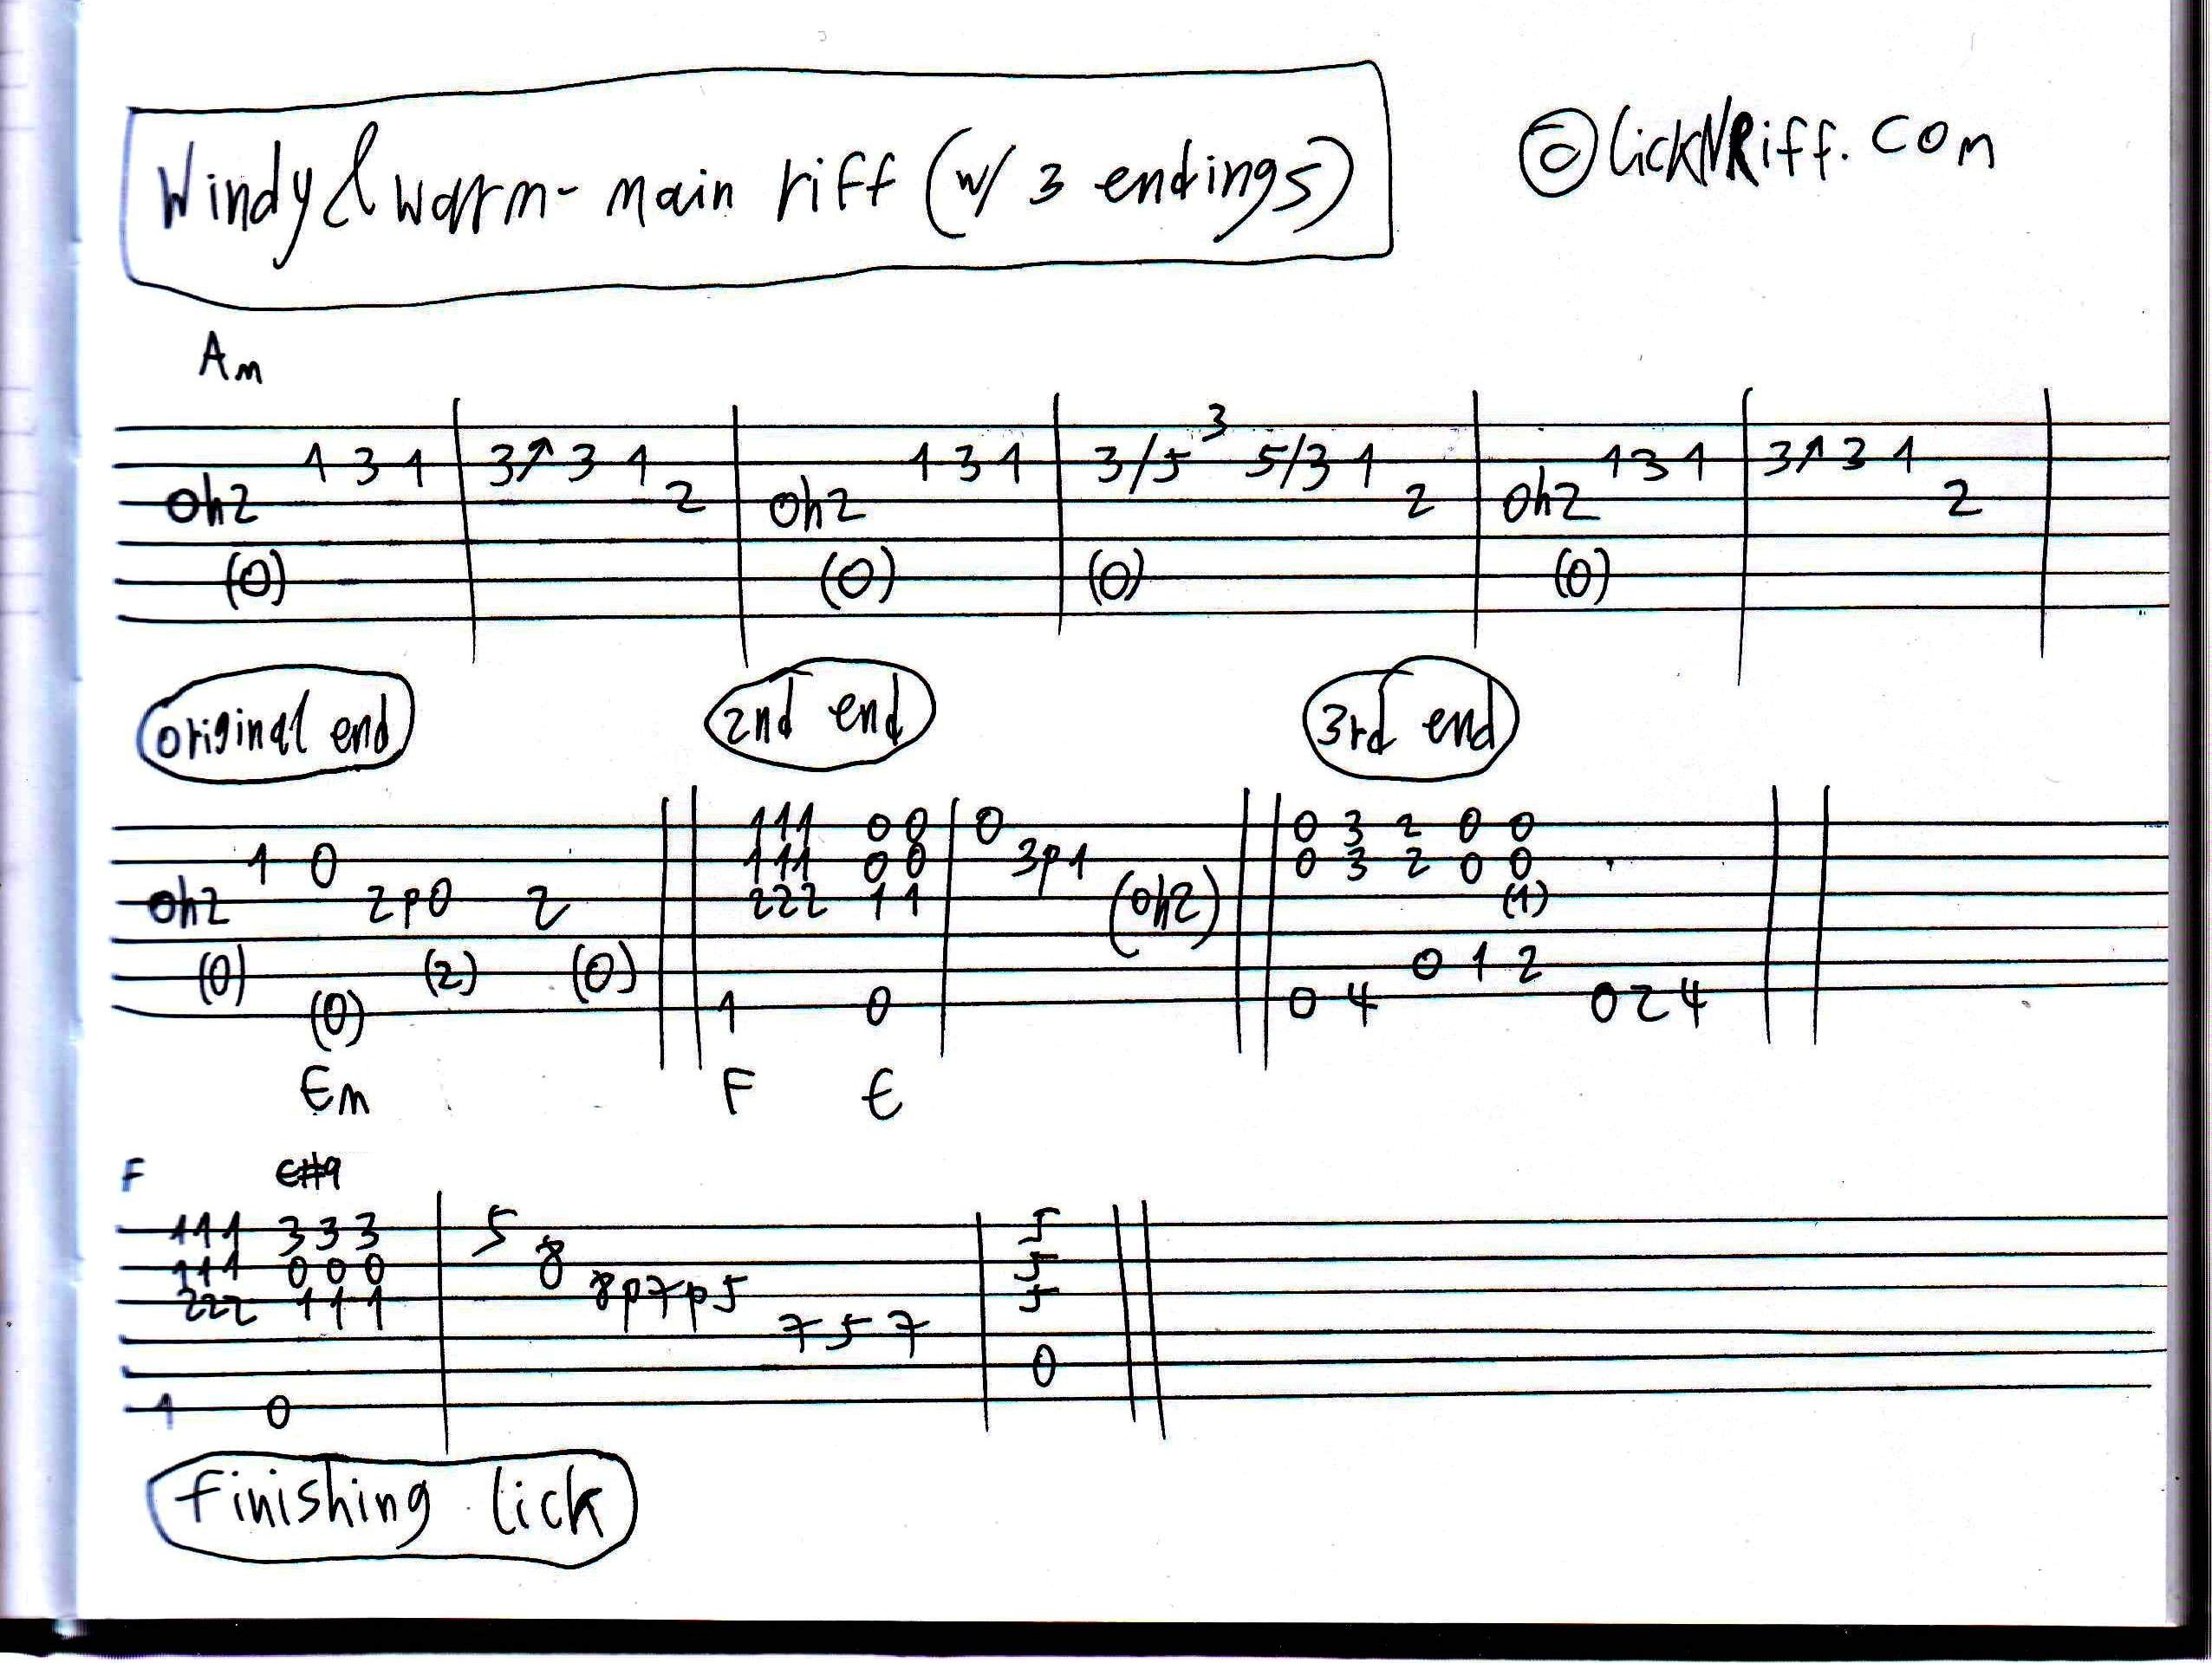 Windy & warm - main riff (w/ 3 endings)
© lickNRiff.com
Am
3
1 3 1 3↑ 3 1 1 3 1 3/5 5/3 1 1 3 1 3↑ 3 1
0h2 2 0h2 2 0h2 2
(0) (0) (0) (0)
original end 2nd end 3rd end
111 0 0 0 0 3 2 0 0
1 0 111 0 0 3p1 0 3 2 0 0
0h2 2p0 2 222 1 1 (0h2) (1)
(0) (2) (0) 0 1 2
(0) 1 0 0 4 0 2 4
Em F E
F E#9
111 3 3 3 5 5
111 0 0 0 8 5
222 1 1 1 8p7p5 5
7 5 7
0
1 0
finishing lick